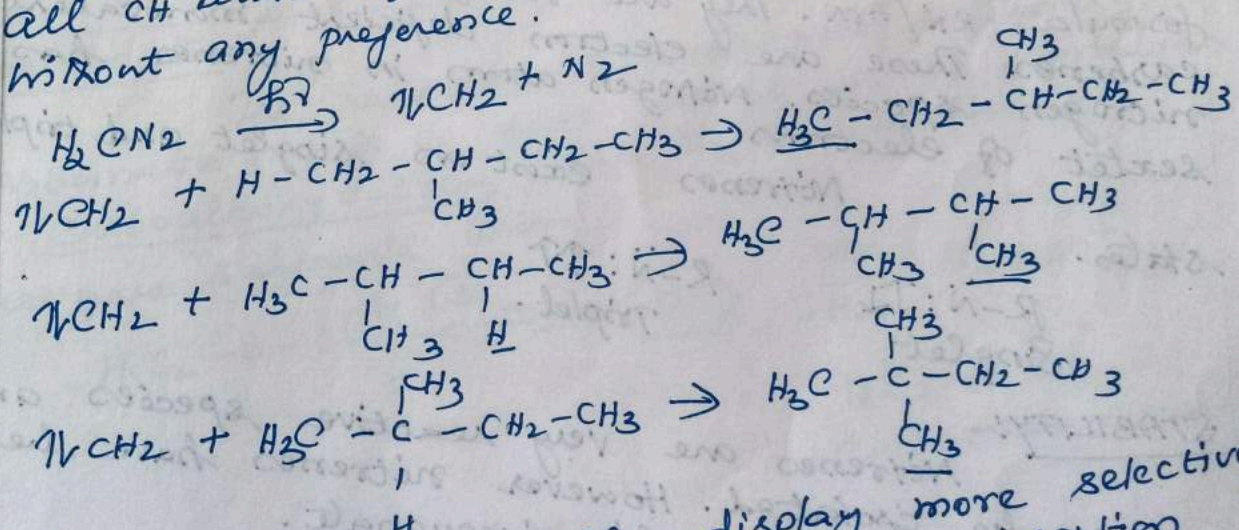 all CH
without any preference.
H2CN2 hν → ⇅CH2 + N2
CH3
⇅CH2 + H - CH2 - CH - CH2 - CH3 → H3C - CH2 - CH - CH2 - CH3
CH3
⇅CH2 + H3C - CH - CH - CH3 → H3C - CH - CH - CH3
CH3 H CH3 CH3
CH3 CH3
⇅CH2 + H3C - C - CH2 - CH3 → H3C - C - CH2 - CH3
H CH3
display more selective